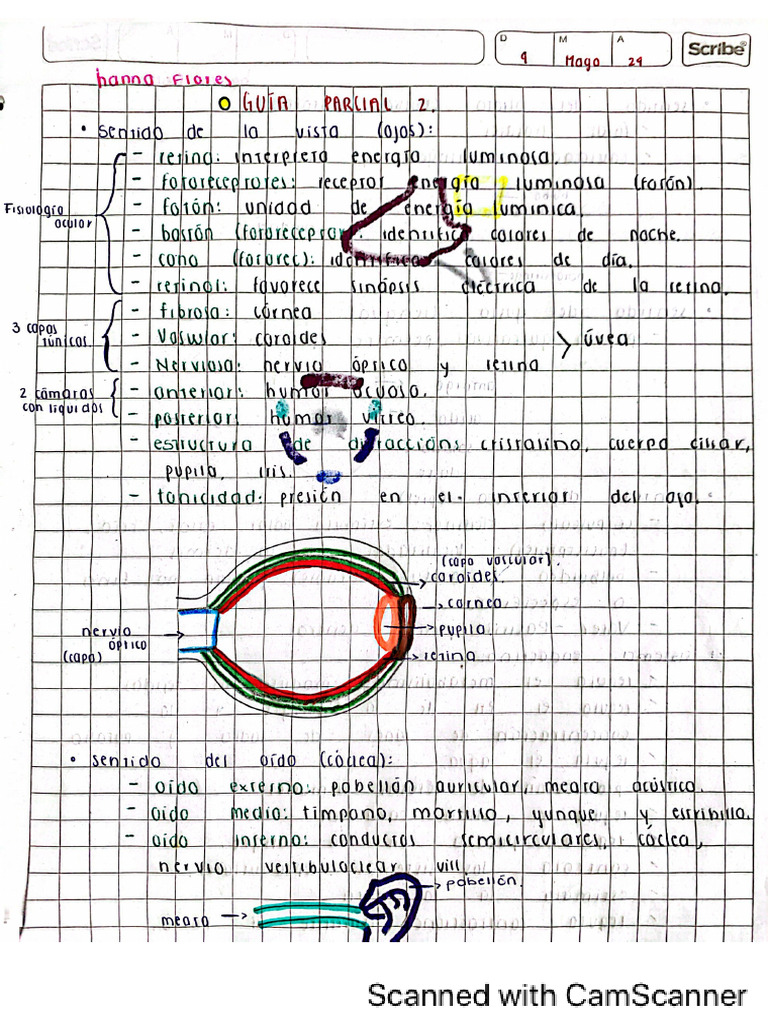 D M A
9 Mayo 24
Scribe
hanna Flores
GUÍA PARCIAL 2.
• sentido de la vista (ojos):
Fisiología ocular
- retina: interpreta energía luminosa.
- fotoreceptores: receptor energía luminosa (fotón).
- fotón: unidad de energía lumínica.
- bastón (fotoreceptor): identifica colores de noche.
- cono (fotorec): identifica colores de día.
- retinol: favorece sinápsis eléctrica de la retina.
3 capas túnicas.
- fibrosa: córnea
- Vascular: coroides
> úvea
- Nerviosa: nervio óptico y retina
2 cámaras con líquidos
- anterior: humor acuoso.
- posterior: humor vítreo.
- estructura de difracción: cristalino, cuerpo ciliar,
pupila, iris.
- tonicidad: presión en el interior del ojo.
(capa vascular).
coroides.
cornea
nervio óptico (capa)
pupila
retina
• sentido del oído (cóclea):
- oido externo: pabellón auricular, meato acústico.
- oido medio: timpano, martillo, yunque y estribillo.
- oido interno: conductos semicirculares, cóclea,
nervio vestibuloclear viii.
pabellón.
meato
Scanned with CamScanner